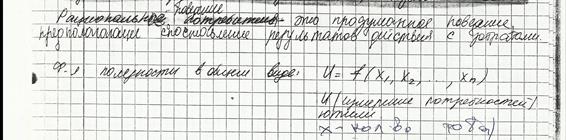 поведение
Рациональное потребление - это продуманное поведение,
предполагающ сопоставление результатов действия с затратами.
Ф-я полезности в общем виде: U = f(x₁, x₂, ..., xₙ)
U (измерение потребностей)
ютили
x - кол-во товара